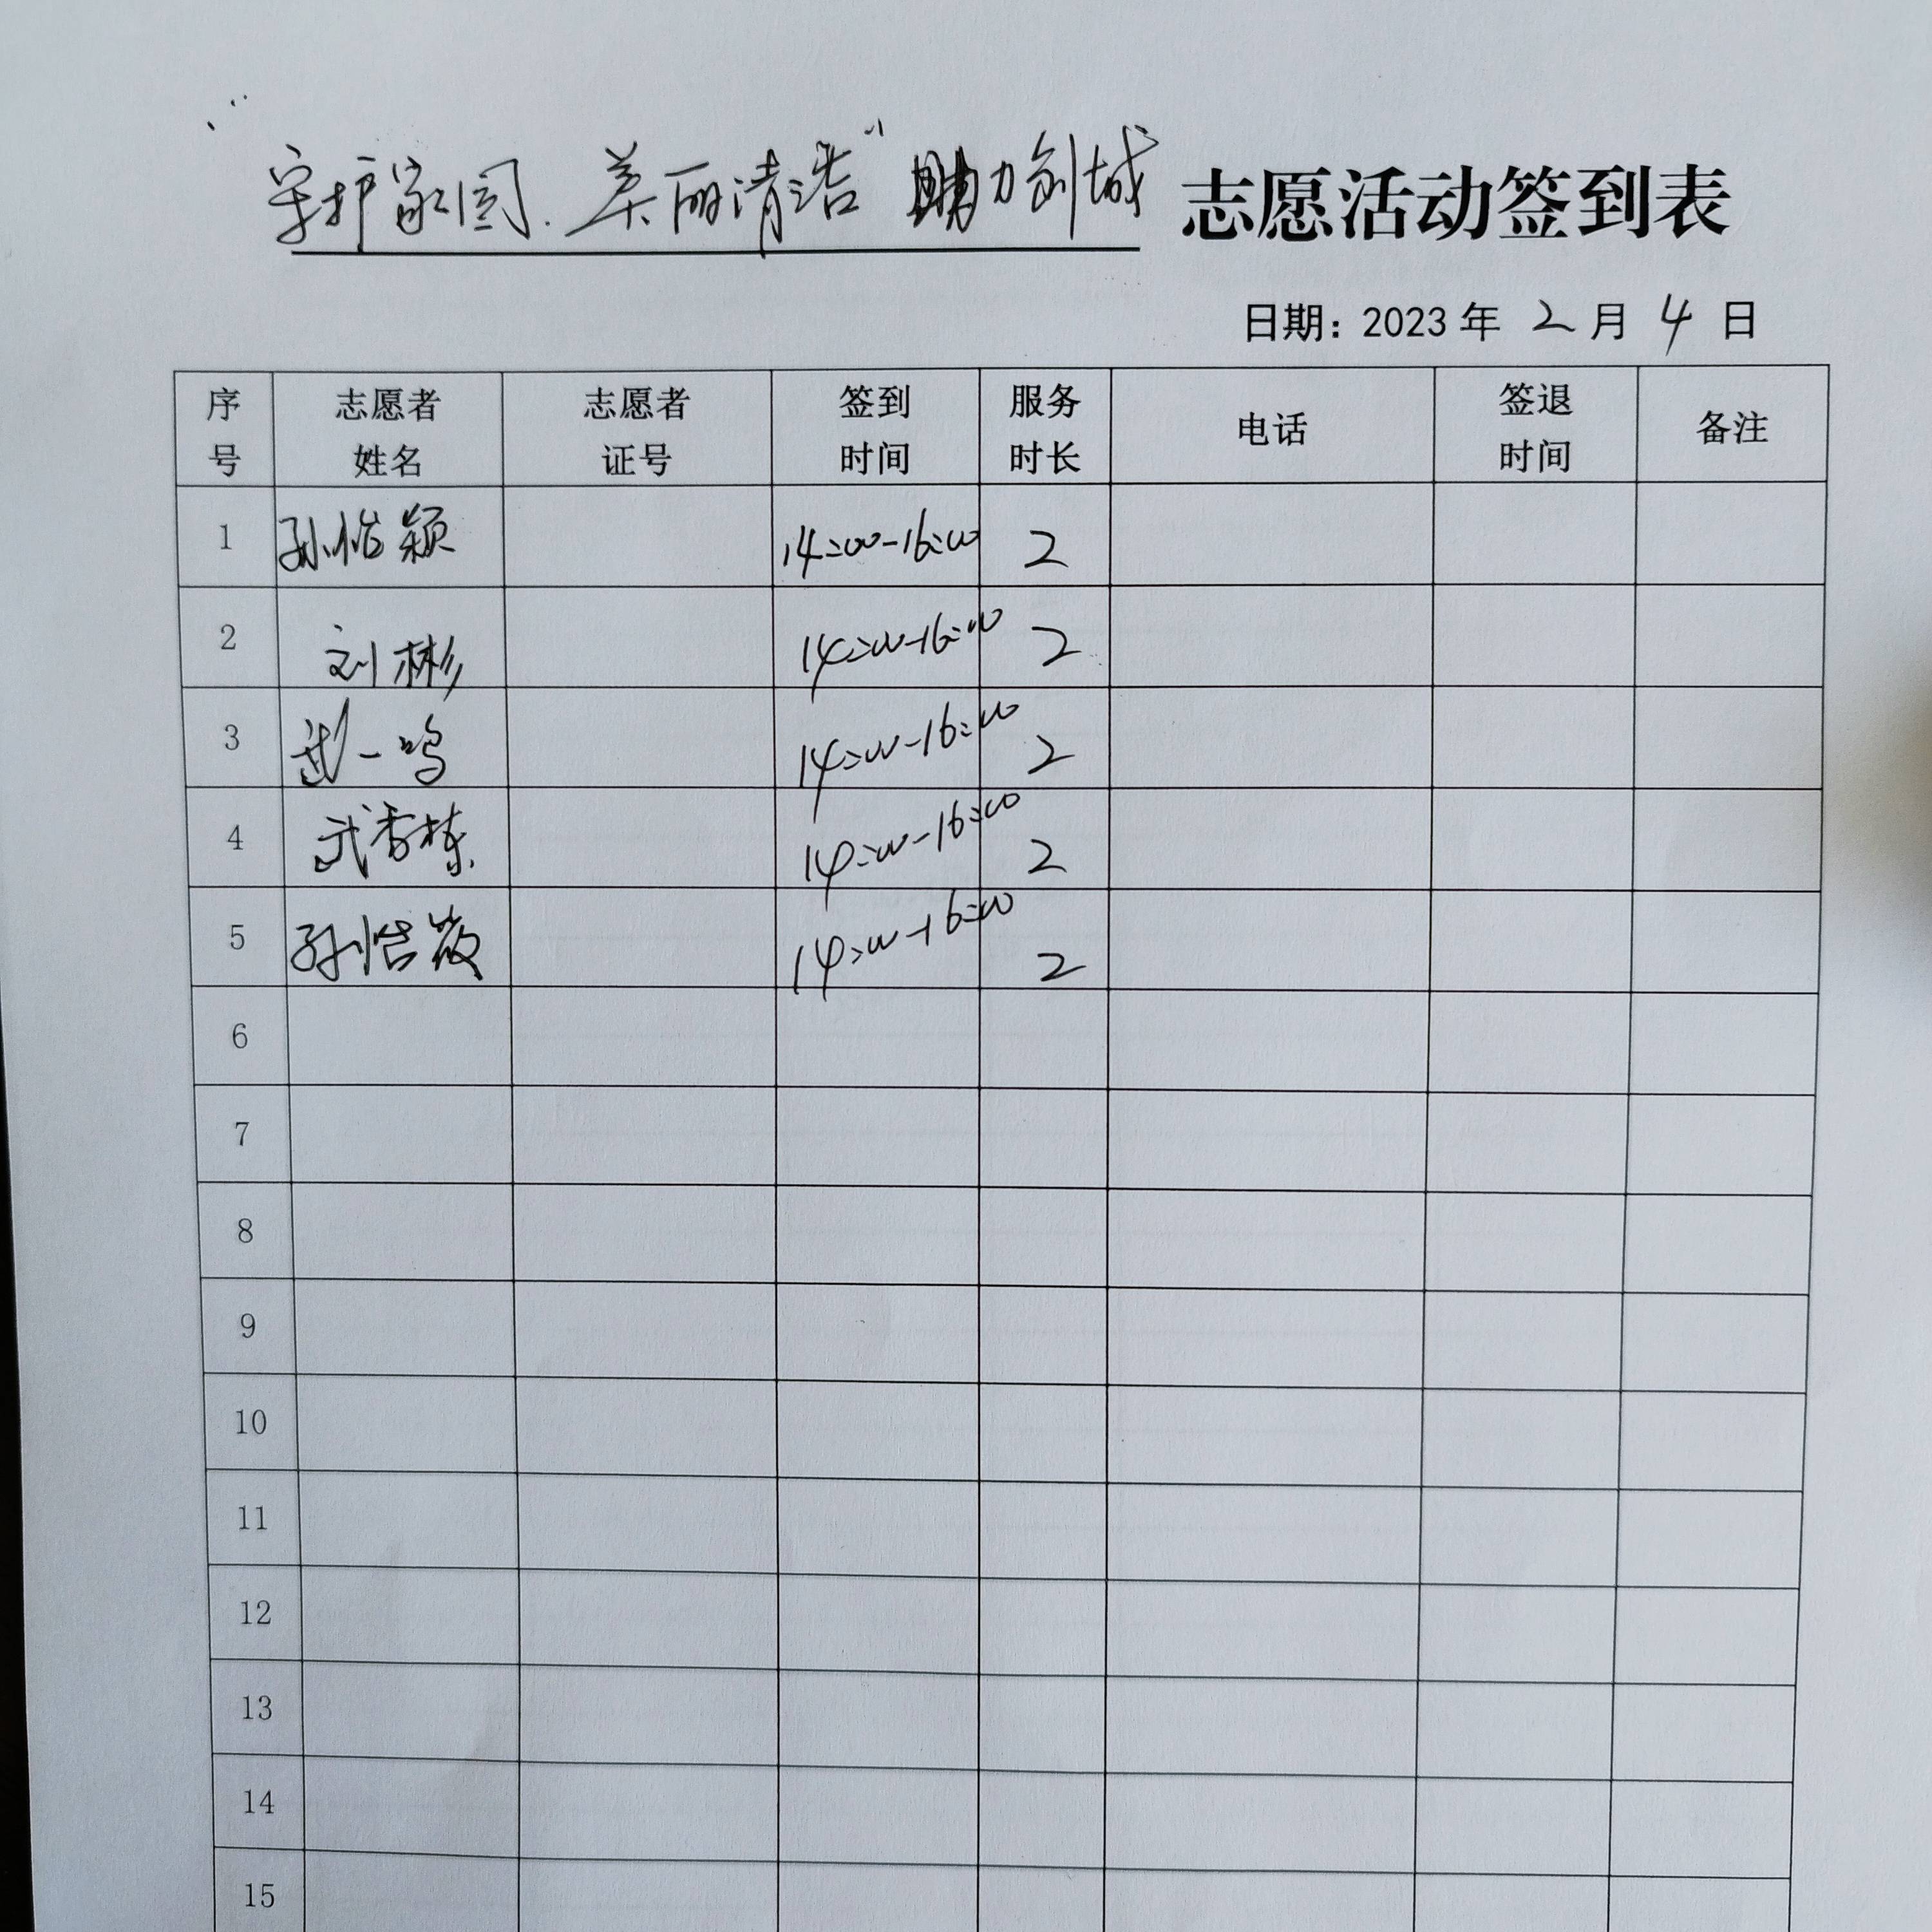 “守护家园.美丽清洁”助力创城 志愿活动签到表
日期：2023年 2月 4日
序号 志愿者姓名 志愿者证号 签到时间 服务时长 电话 签退时间 备注
1 孙皓颖 14:00-16:00 2
2 刘彬 14:00-16:00 2
3 武一鸣 14:00-16:00 2
4 武香栋 14:00-16:00 2
5 孙浩 14:00-16:00 2
6
7
8
9
10
11
12
13
14
15